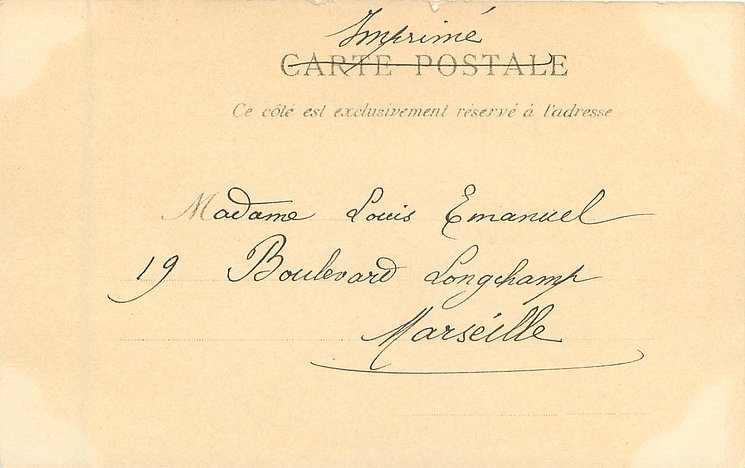 Imprimé
CARTE POSTALE
Ce côté est exclusivement réservé à l'adresse
Madame Louis Emanuel
19 Boulevard Longchamp
Marséille